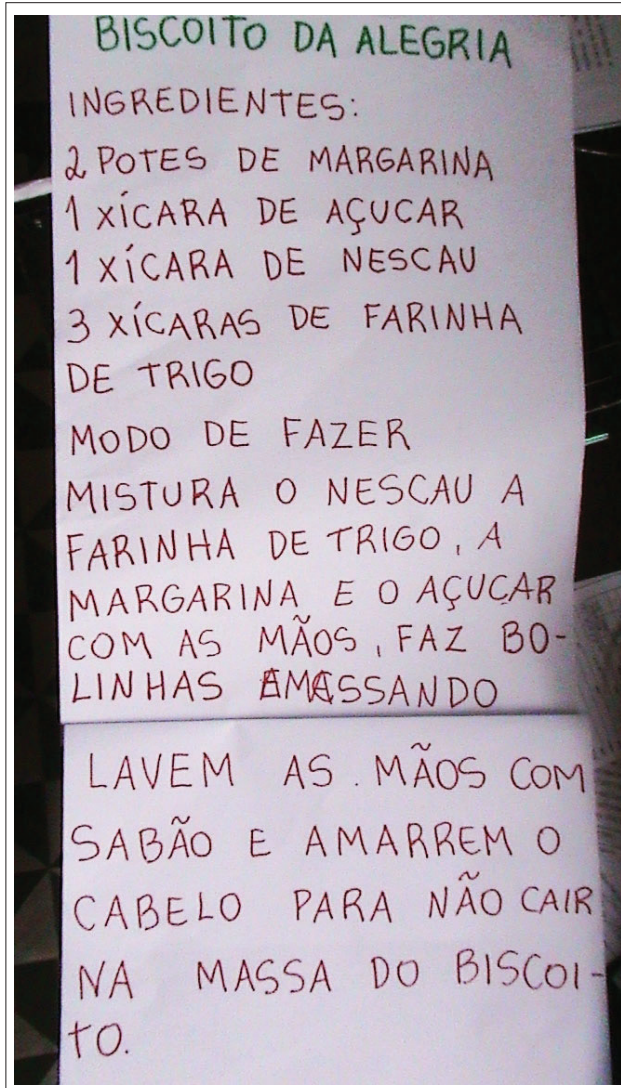 BISCOITO DA ALEGRIA
INGREDIENTES:
2 POTES DE MARGARINA
1 XÍCARA DE AÇUCAR
1 XÍCARA DE NESCAU
3 XÍCARAS DE FARINHA
DE TRIGO
MODO DE FAZER
MISTURA O NESCAU A
FARINHA DE TRIGO, A
MARGARINA E O AÇUCAR
COM AS MÃOS, FAZ BO-
LINHAS AMASSANDO
LAVEM AS MÃOS COM
SABÃO E AMARREM O
CABELO PARA NÃO CAIR
NA MASSA DO BISCOI-
TO.